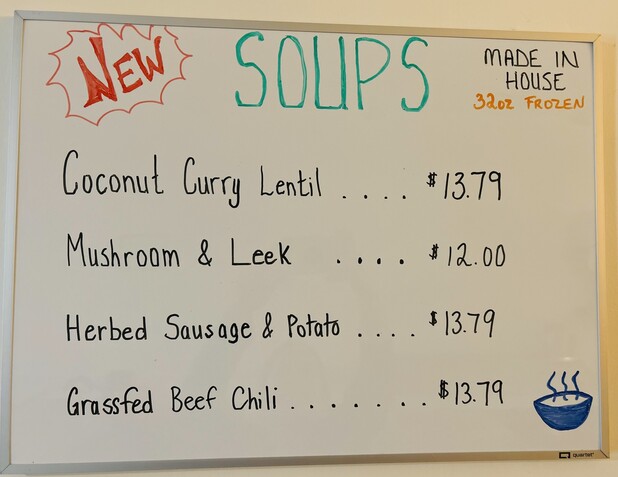 NEW
SOUPS
MADE IN
HOUSE
32oz FROZEN
Coconut Curry Lentil .... $13.79
Mushroom & Leek .... $12.00
Herbed Sausage & Potato .... $13.79
Grassfed Beef Chili ....... $13.79
quartet